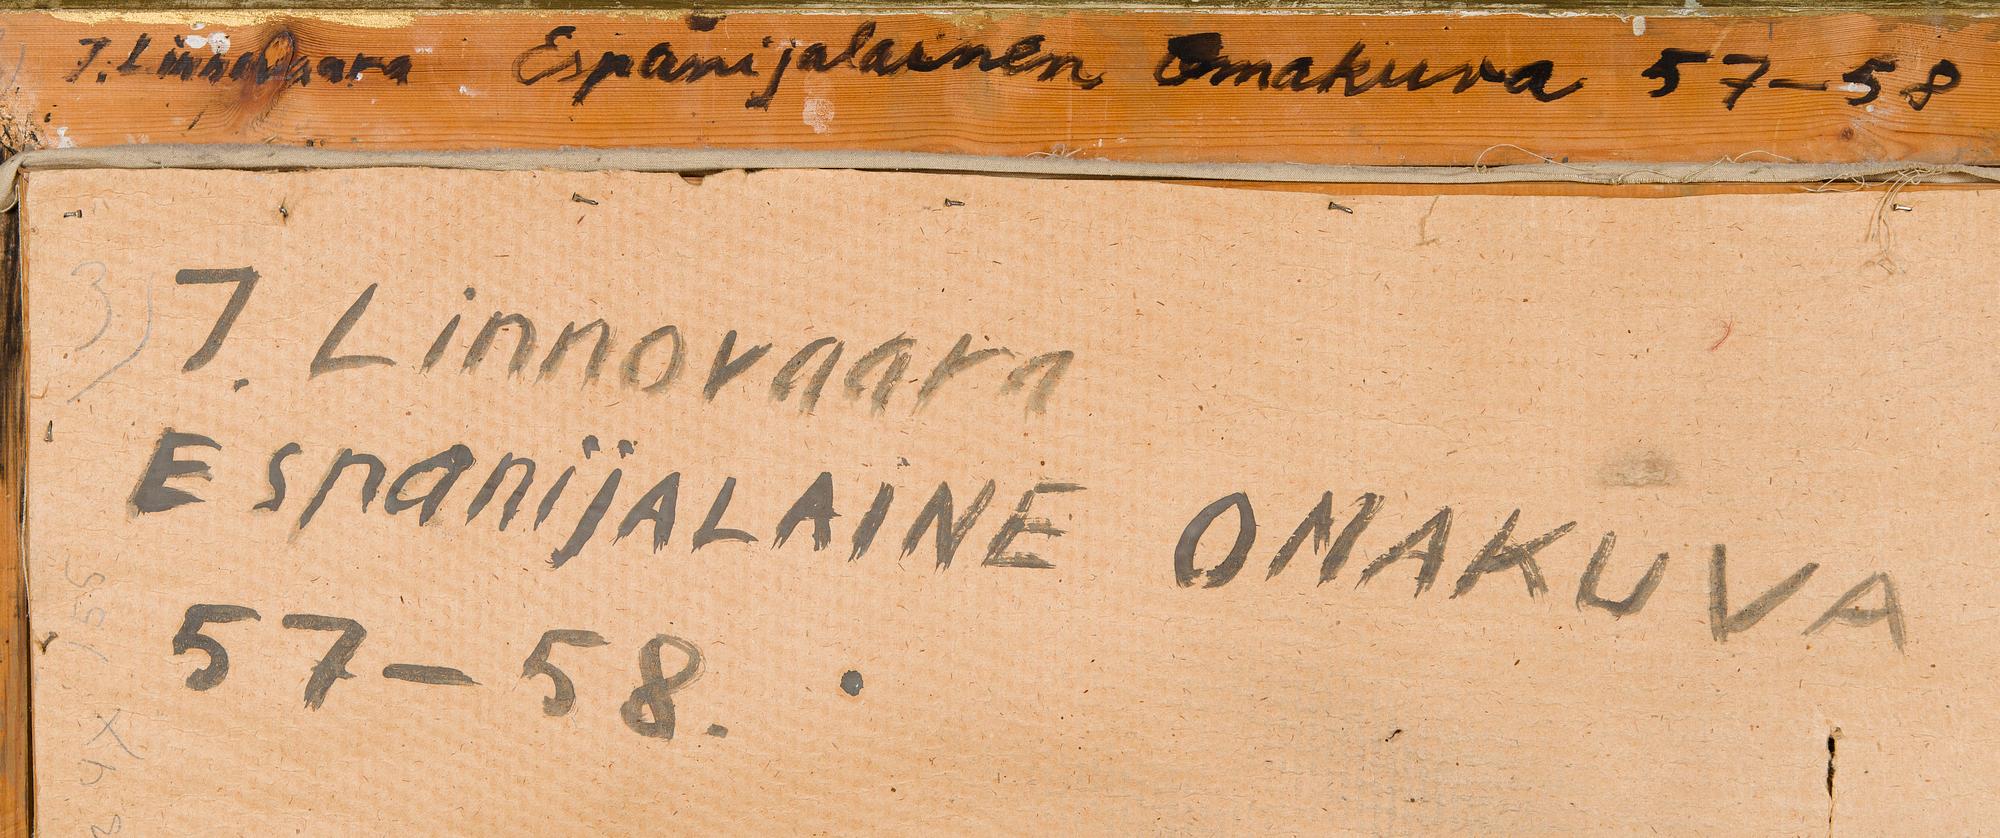 J. Linnovaara Espanijalainen Omakuva 57-58
3)
J. Linnovaara
EspanijALAiNE OMAKUVA
57-58.
155